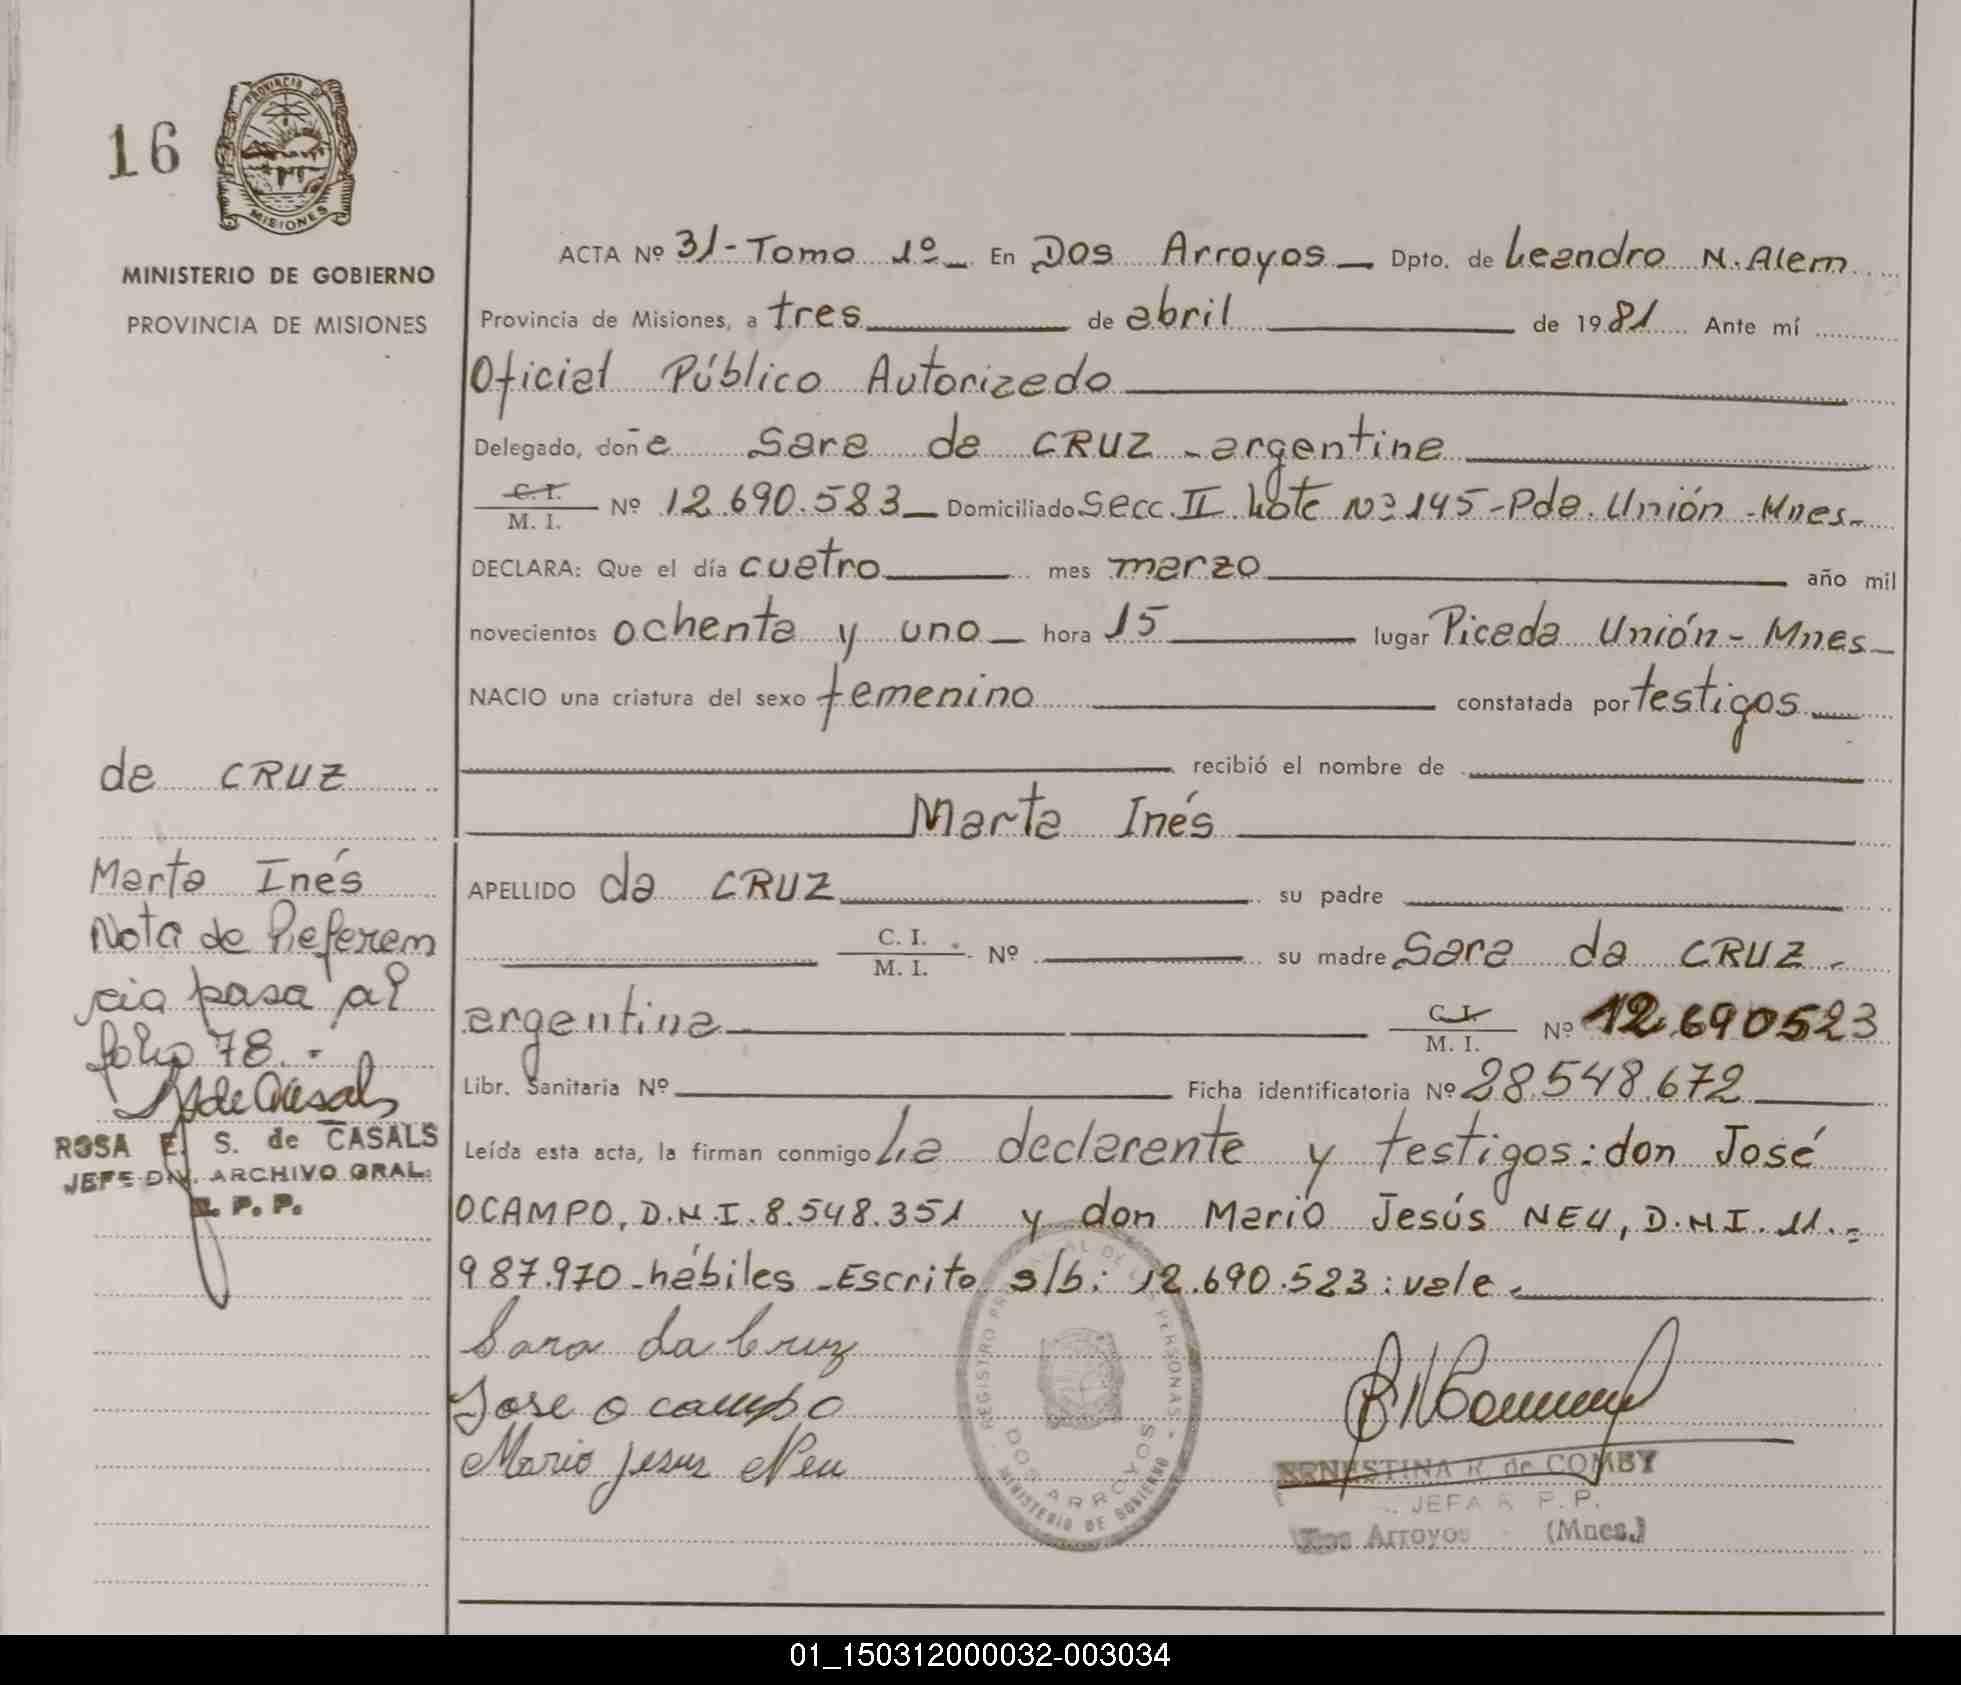 16
PROVINCIA DE
MISIONES
MINISTERIO DE GOBIERNO
PROVINCIA DE MISIONES
ACTA Nº 31- Tomo 1º - En Dos Arroyos - Dpto. de Leandro N. Alem
Provincia de Misiones, a tres de abril de 1981 Ante mí
Oficial Público Autorizado
Delegado, doña Sara da CRUZ - argentina
C. I.
M. I. Nº 12.690.583 - Domiciliado Secc. II Lote Nº 145 - Pda. Unión - Mnes-
DECLARA: Que el día cuatro mes marzo año mil
novecientos ochenta y uno - hora 15 lugar Picada Unión - Mnes-
NACIO una criatura del sexo femenino constatada por testigos
recibió el nombre de
Marta Inés
APELLIDO da CRUZ su padre
C. I.
M. I. Nº su madre Sara da CRUZ -
argentina C. I.
M. I. Nº 12.690523
Libr. Sanitaria Nº Ficha identificatoria Nº 28.548.672
Leída esta acta, la firman conmigo La declarante y testigos: don José
OCAMPO, D.N.I. 8.548.351 y don Mario Jesús NEU, D.N.I. 11.-
987.970 - hábiles - Escrito s/b: 12.690.523: vale -
Sara da Cruz
Jose ocampo
Mario jesus Neu
REGISTRO DE PERSONAS
DOS ARROYOS
MINISTERIO DE GOBIERNO
ERNESTINA R. de COMBY
JEFA R. P. P.
Dos Arroyos (Mnes.)
da CRUZ
Marta Inés
Nota de Referen
cia pasa al
folio 78.-
ROSA E. S. de CASALS
JEFE DIV. ARCHIVO GRAL.
R. P. P.
01_150312000032-003034